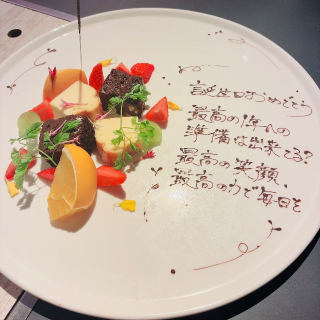 誕生日おめでとう
最高の1年への
準備は出来てる?
最高の笑顔、
最高の力で毎日を